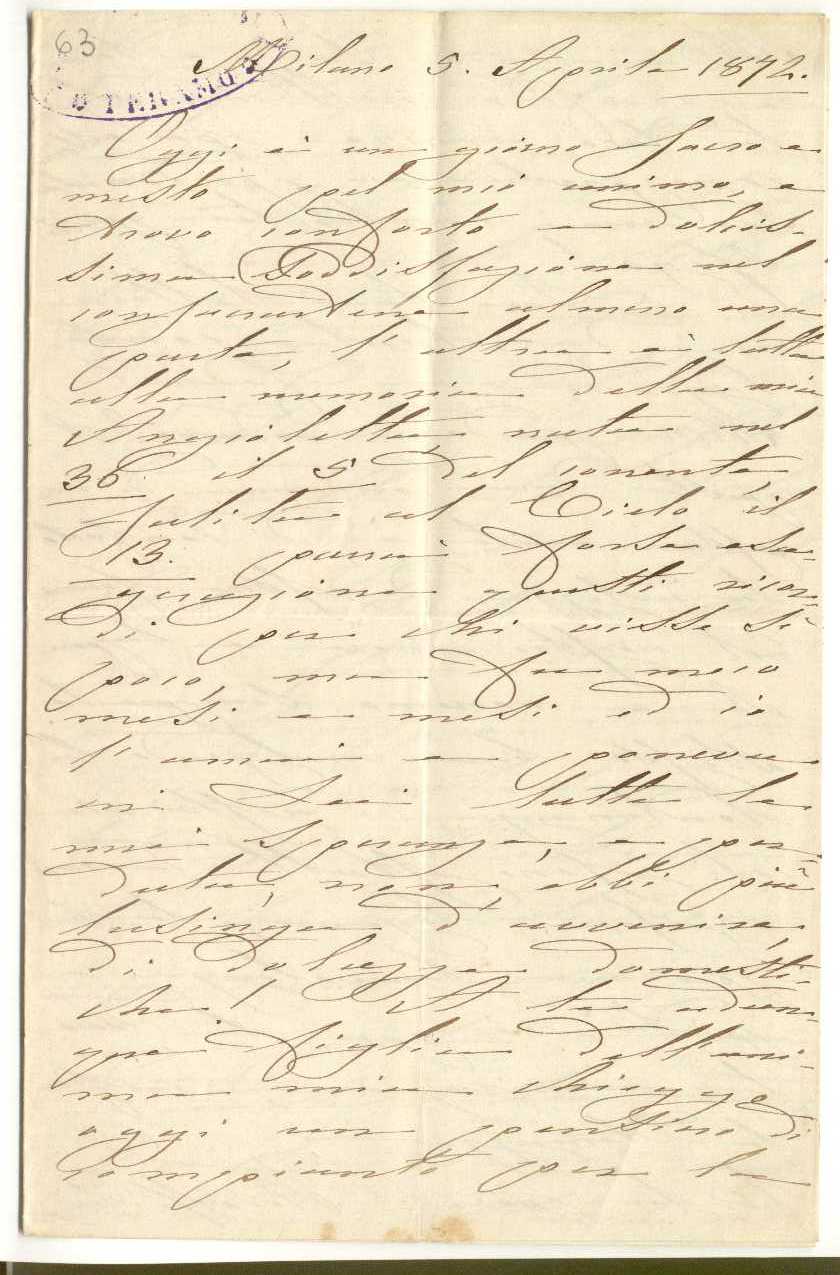 63
TERAMO
Milano 5. Aprile 1872.
Oggi è un giorno sacro e
mesto pel mio animo, e
trovo conforto e dolcis-
sima soddisfazione nel
consacrartene almeno una
parte, l'altra è tutta
alla memoria della mia
Angioletta, nata nel
36. il 5 del corrente,
salita al Cielo il
13. parrà forse esa-
gerazione questi ricor-
di per chi visse sì
poco, ma fu meco
mesi e mesi ed io
l'amai e poneva
in Lei tutte le
mie speranze, e per-
duta, non ebbi più
lusinga d'avvenire,
di dolcezze domesti-
che! A te adun-
que figlia dell'ani-
ma mia chieggo
oggi un pensiero di
compianto per la